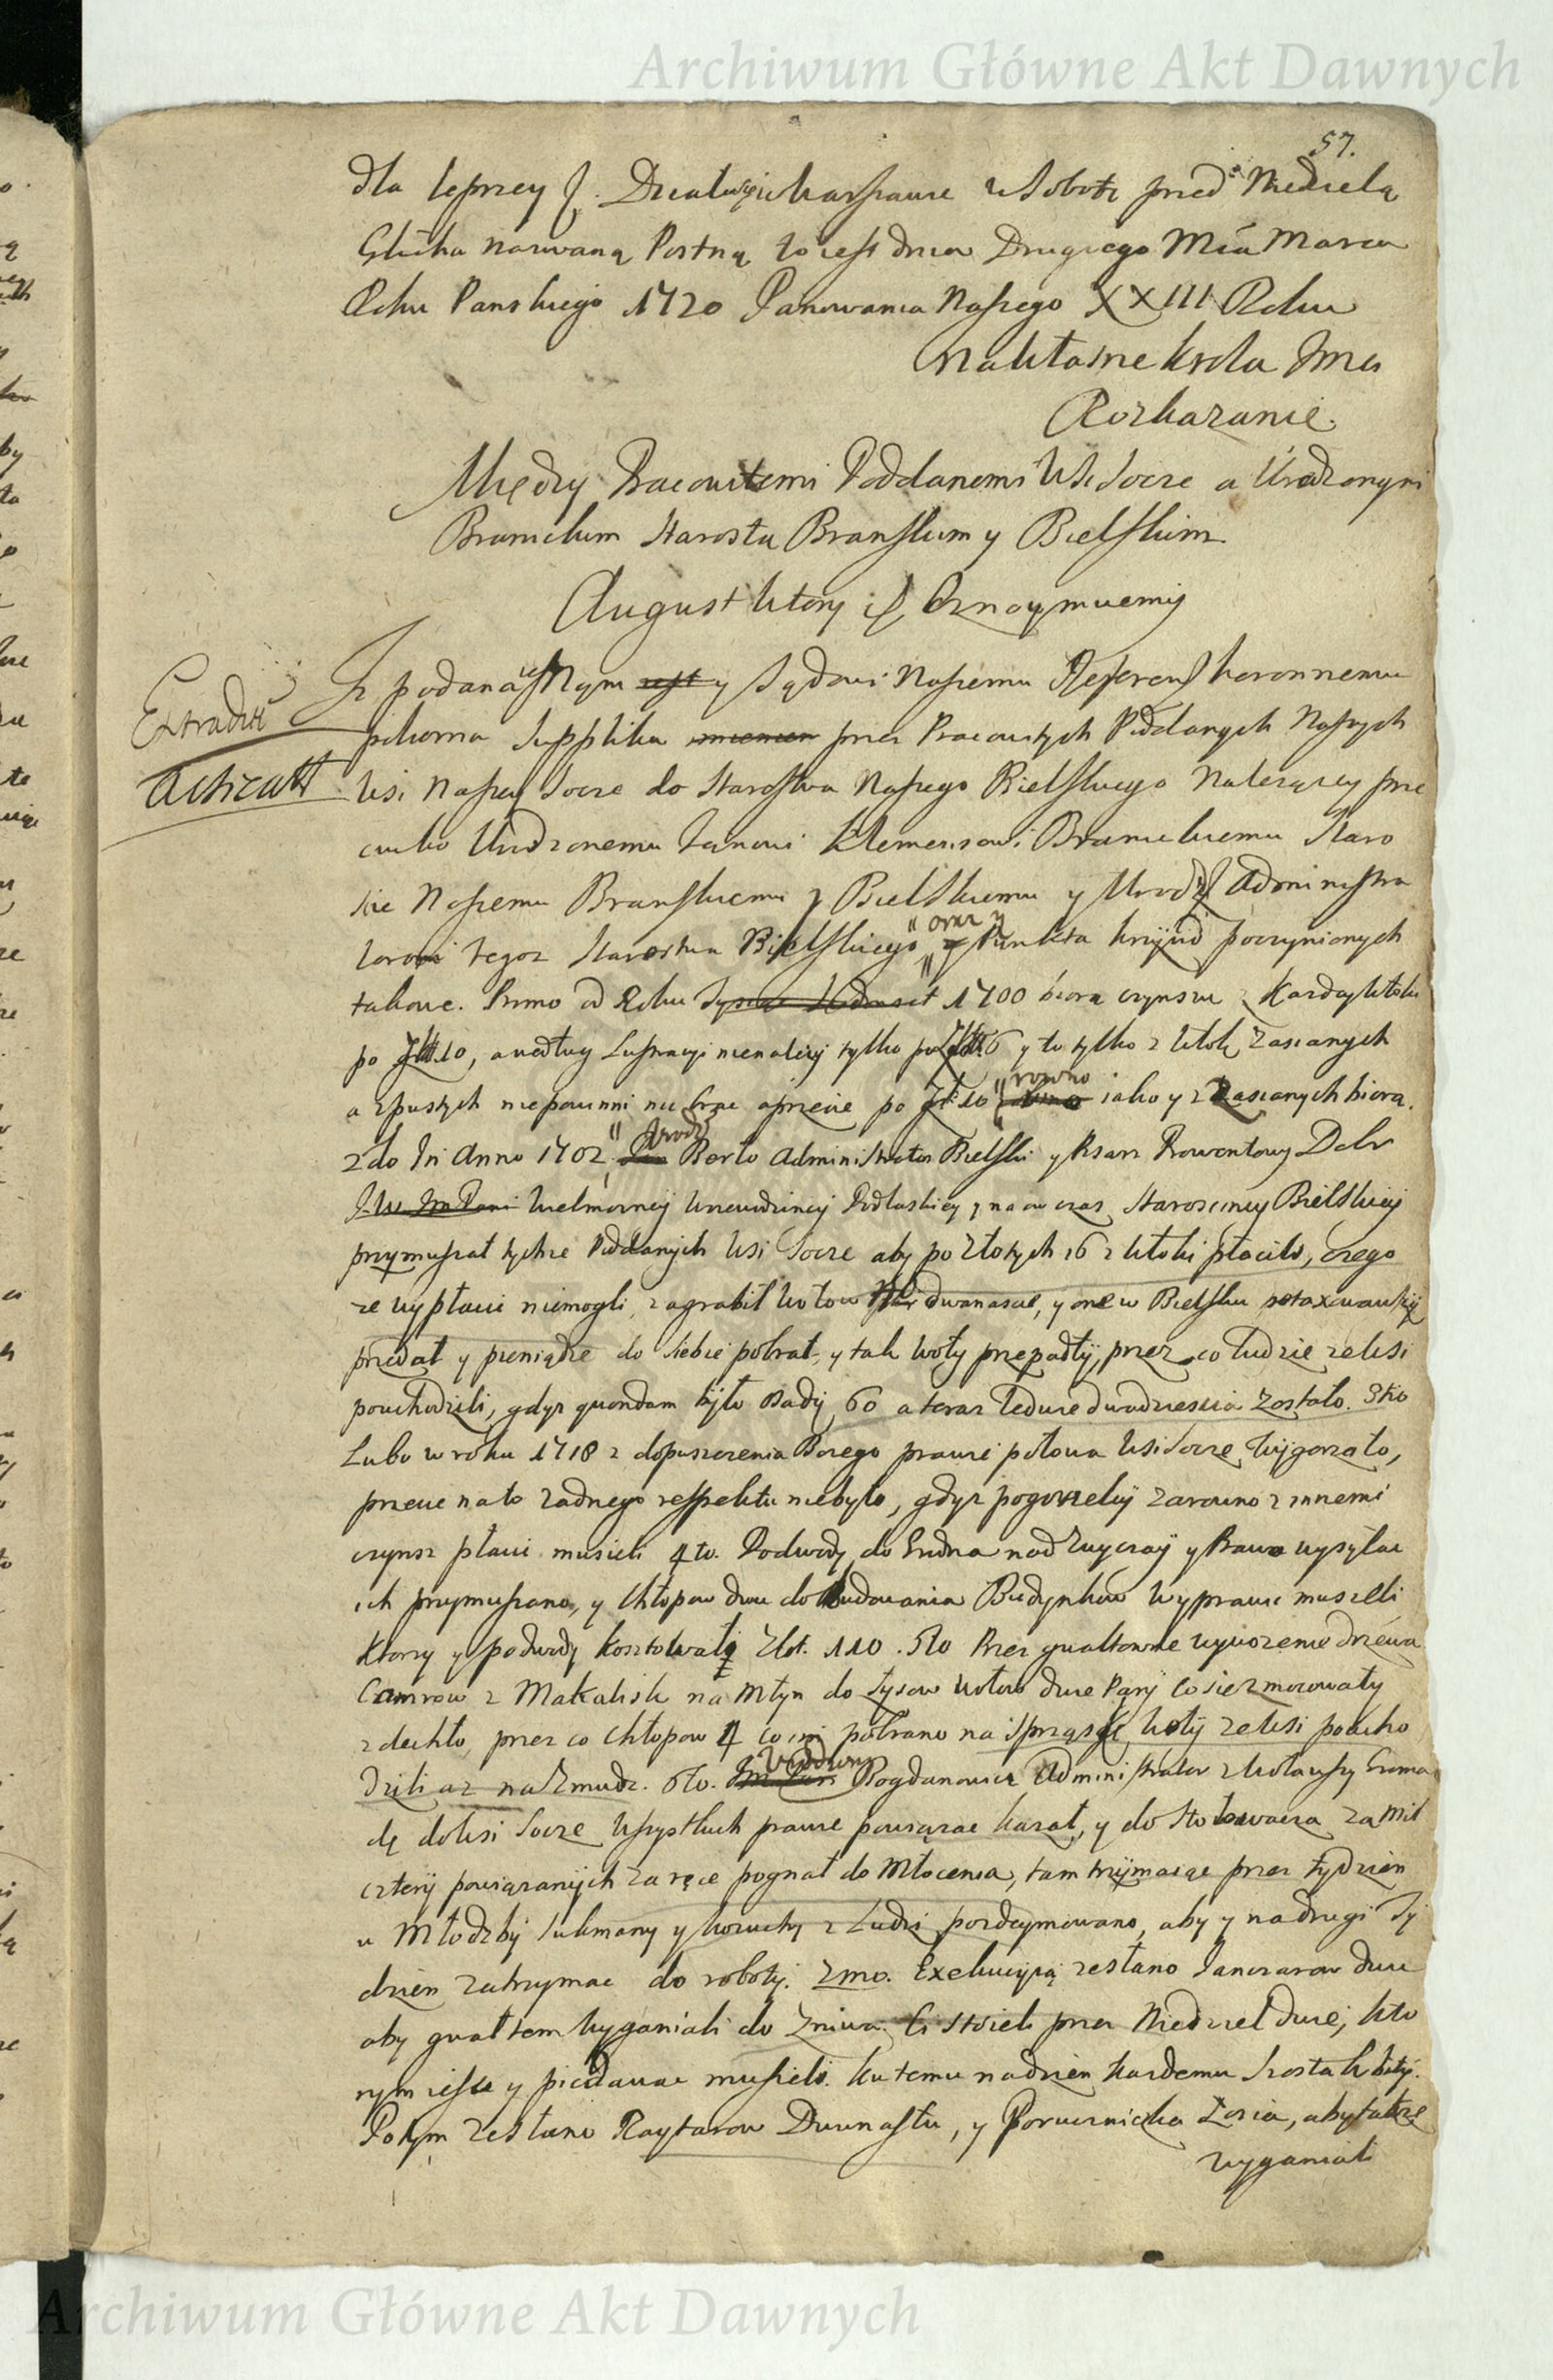 Archiwum Główne Akt Dawnych
57.
dla lepszey f. Działo się w Warszawie w Sobotę przed Niedzielą
Głucha nazwaną Postną to iest dnia Drugiego Mća Marca
Roku Panskiego 1720 Panowania Naszego XXIII Roku
Na własne Krola Jmci
Rozkazanie.
Między Pracowitemi Poddanemi Wsi Socze a Urodzonym
Branickim Starostą Branskim y Bielskim
August Wtory Oznaymuemy
Extradit
Acticatt
Iz podana iest Nam iest y Sądowi Naszemu Referen Koronnemu
pokorna Supplika imieniem przez Pracowitych Poddanych Naszych
Wsi Naszey Socze do Starostwa Naszego Bielskiego Nalezącey prze
ciwko Urodzonemu Janowi Klemensowi Branickiemu Staro
scie Naszemu Branskiemu y Bielskiemu y Urodz Administra
torowi tegoz Starostwa Bielskiego " oraz y Punkta krzywd poczynionych
takowe. Primo od Roku 1700 biorą czynszu z Kazdey Włoki
po Zł. 10, a według Lustracyi nienalezy tylko po Zł. 6 y to tylko z Włok Zasianych
a z pustych niepowinni nic brac a przecie po Zł: 10 " rowno iako y z Zasianych biorą.
2do Jn Anno 1702 " Urodz Berlo Administrator Bielski y Pisarz Prowentowy Dobr
J. W. Im Pani Wielmozney Krewudziney Podlaskiey y na ow czas Starosciney Bielskiey
przymuszał tychze Poddanych Wsi Socze aby po Złotych 16 z Włoki płacili, czego
ze wypłacic niemogli, zagrabił Wołow dwanascie, y one w Bielsku potaxowawszy
przedał y pieniądze do siebie pobrał, y tak woły przepadły, przez co ludzie ze Wsi
pouchodzili, gdyz quondam było osady 60 a teraz ledwie dwadziescia Zostało. 3tio
Lubo w roku 1718 z dopuszczenia Bozego prawie połowa Wsi Socze wygorzało,
przecie na to zadnego respektu niebyło, gdyz pogorzelcy zarowno z innemi
czynsz płacic musieli 4to. Podwody do Gudna nad Zwyczay y Prawo wysyłac
ich przymuszano, y Chłopow dwu do Budowania Budynkow wyprawic musieli
Ktorzy y podwody kosztowały Złot. 110. 5to Przez gwałtowne wywozenie drzewa
Camrow z Makalisk na Młyn do Łysow Wołow dwie Pary co sie zmorowały
zdechło, przez co Chłopow 4 co im pobrano na Sprząsię woły ze Wsi poucho
dzili az na Zmudz. 6to. Urodzony Bogdanowicz Administrator zwoławszy Groma
dę do Wsi Socze Wszystkich prawie powiązac kazał, y do Stołowacza za mil
cztery powiązanych za ręce pognał do Młocenia, tam trzymaiąc przez tydzien
u Młodzby Sukmany y kozuchy z Ludzi pozdeymowano, aby y na drugi Ty
dzien zatrzymac do roboty. 7mo. Exekucyią zesłano Janczarow dwu
aby gwałtem wyganiali do Zniwa. Ci stoieli przez Niedziel dwie, kto
rym iesc y pic dawac musieli. Ku temu na dzien kazdemu Szostak bity.
Potym zesłano Raytarow Dwunastu, y Porucznika Zoria, aby takze
wyganiali
Archiwum Główne Akt Dawnych